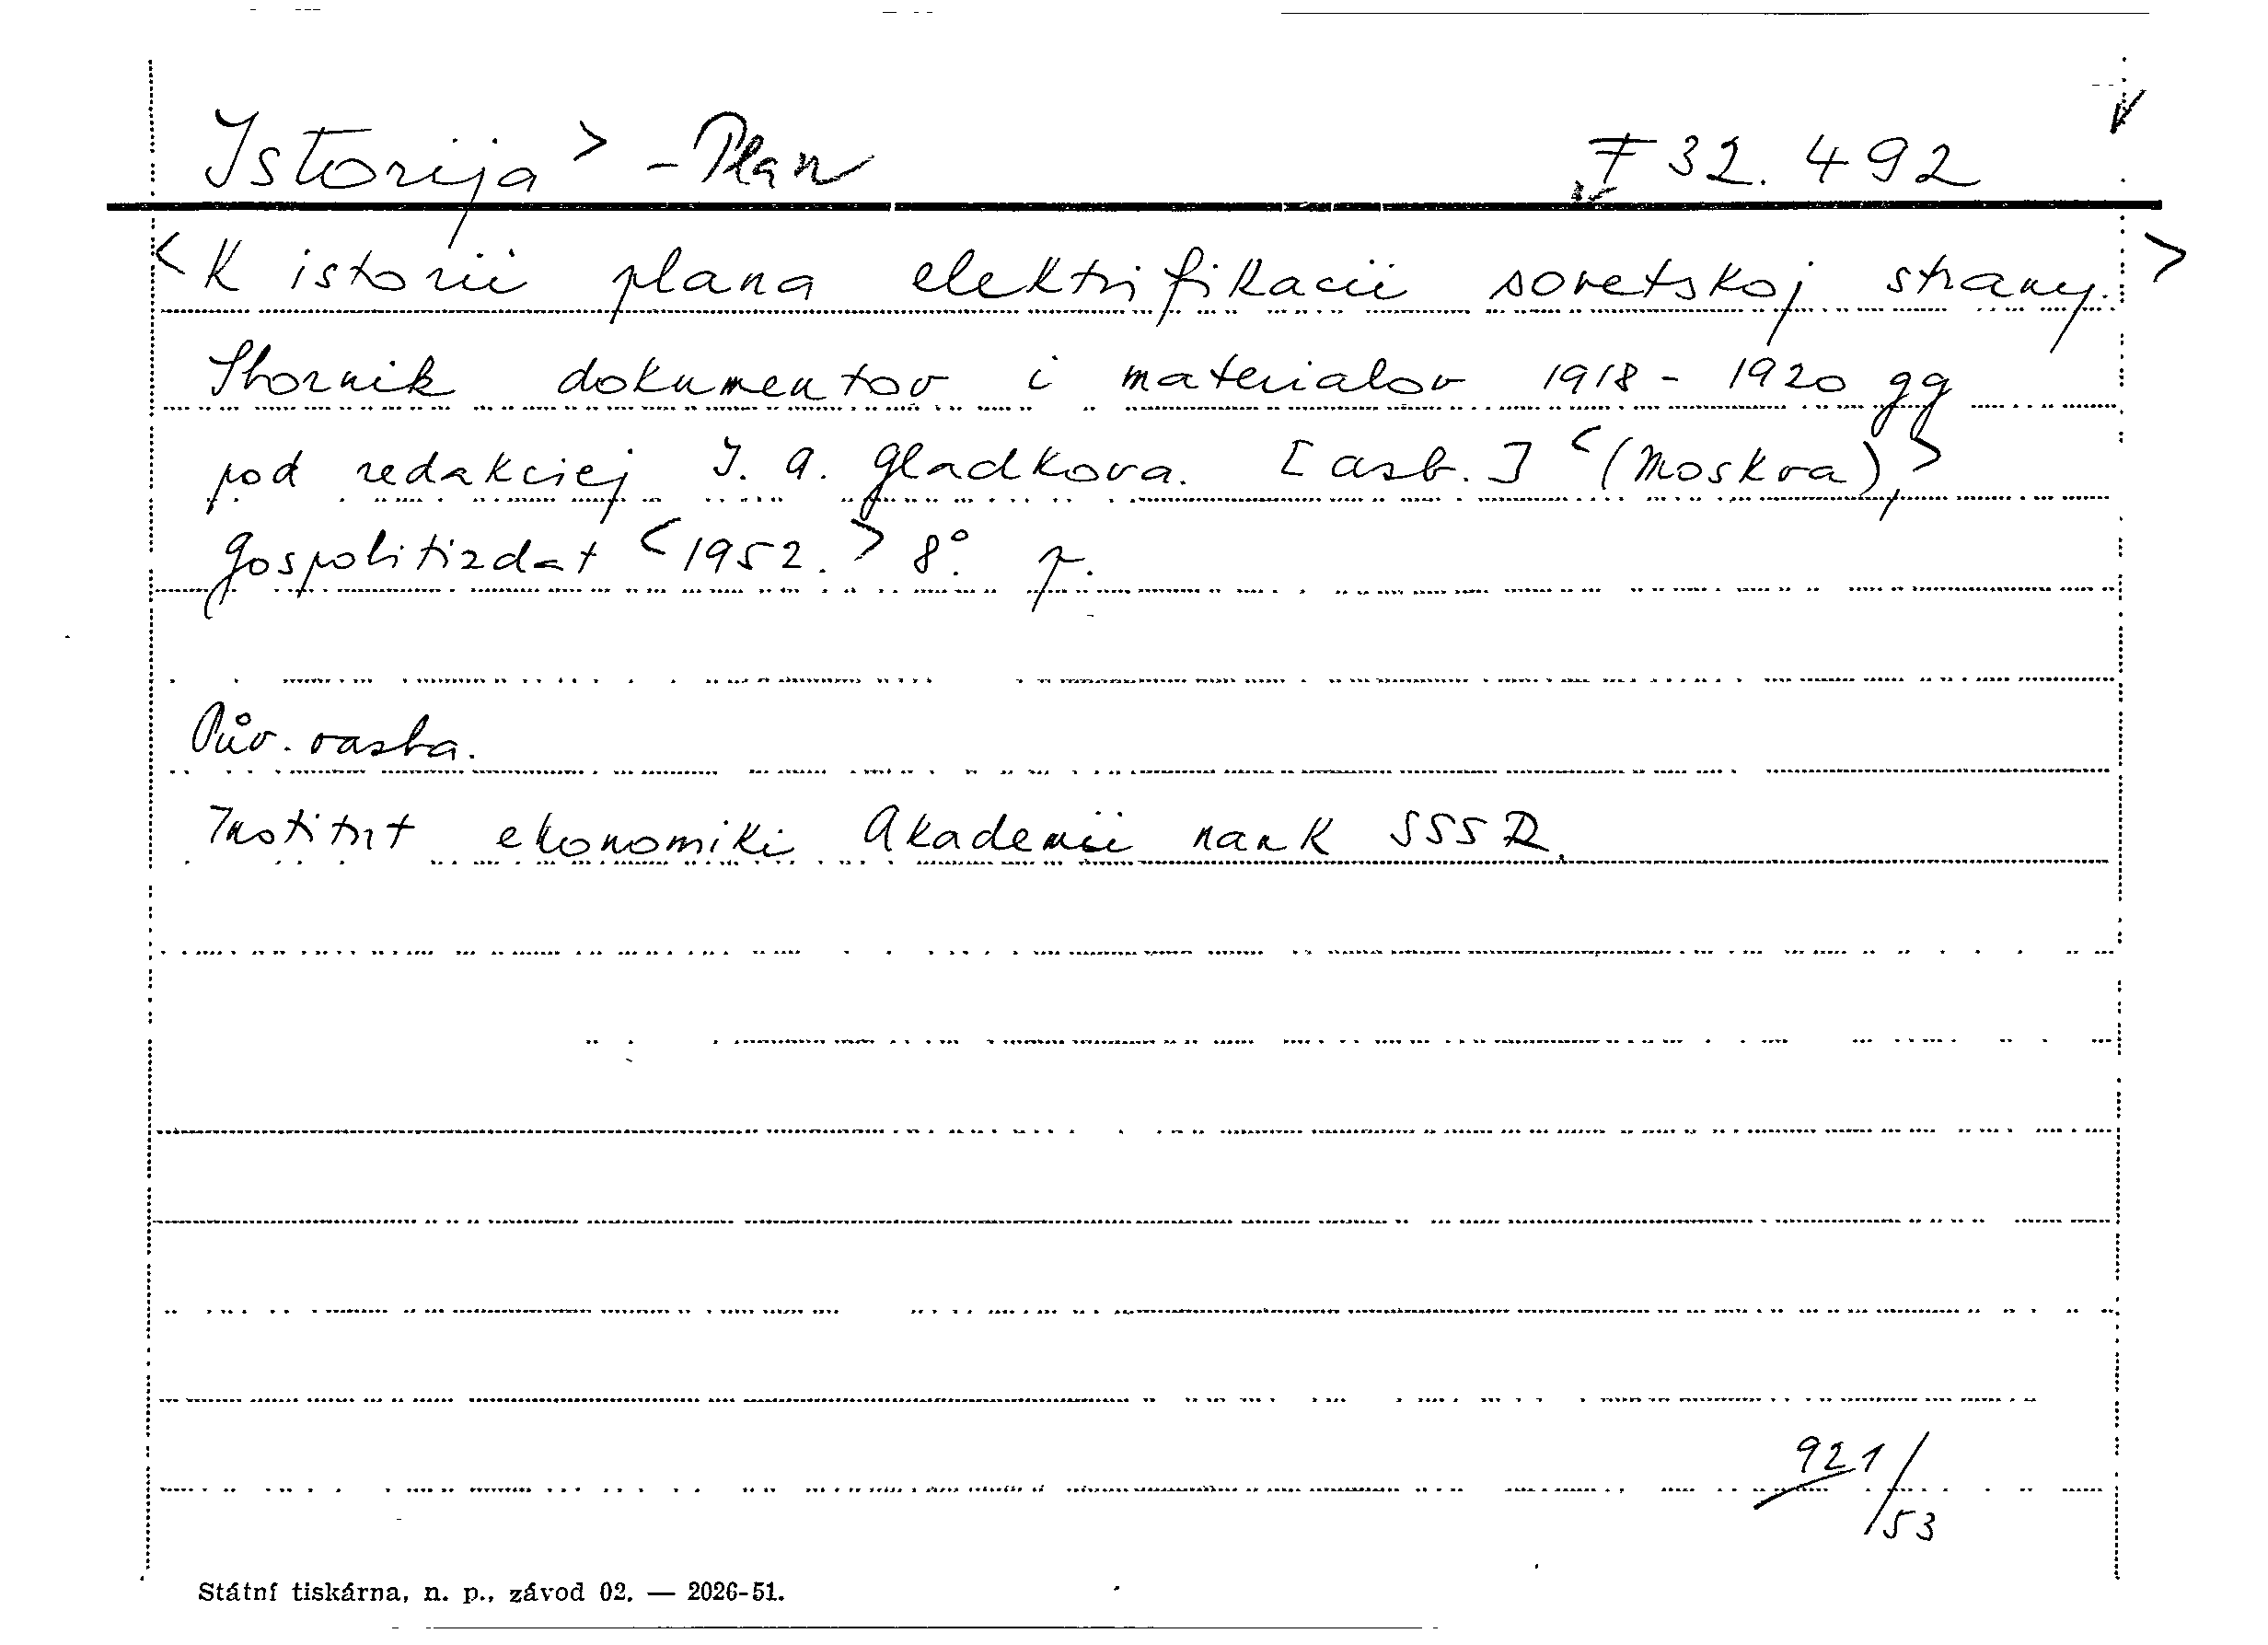 Istorija > - Plan F 32.492
< K istorii plana elektrifikacii sovetskoj strany. >
Sbornik dokumentov i materialov 1918 - 1920 gg
pod redakciej I. A. Gladkova. [azb.] < (Moskva), >
Gospolitizdat < 1952. > 8°. p.
Pův. vazba.
Institut ekonomiki Akademii nauk SSSR.
921/53
Státní tiskárna, n. p., závod 02. — 2026-51.